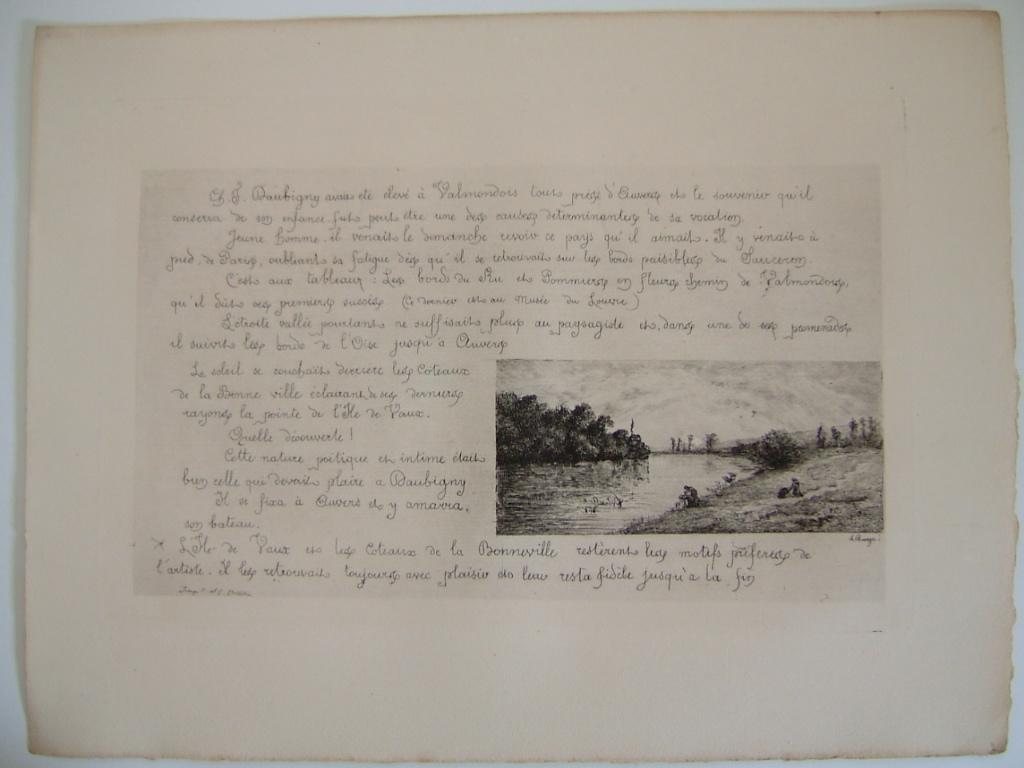 Ch. F. Daubigny avait été élevé à Valmondois tout près d'Auvers et le souvenir qu'il
conserva de son enfance fut peut être une des causes déterminantes de sa vocation.
Jeune homme, il venait le dimanche revoir ce pays qu'il aimait. Il y venait à
pied, de Paris, oubliant sa fatigue dès qu'il se retrouvait sur les bords paisibles du Sausseron.
C'est aux tableaux : Les bords du Ru et Pommiers en fleurs chemin de Valmondois,
qu'il dût ses premiers succès (Ce dernier est au Musée du Louvre)
L'étroite vallée pourtant ne suffisait plus au paysagiste et, dans une de ses promenades
il suivit les bords de l'Oise jusqu'à Auvers
Le soleil se couchait derrière les Coteaux
de la Bonne ville éclairant de ses derniers
rayons la pointe de l'Ile de Vaux.
Quelle découverte !
Cette nature poétique et intime était
bien celle qui devait plaire a Daubigny
Il se fixa à Auvers et y amarra,
son bateau.
L'Ile de Vaux et les Coteaux de la Bonneville restèrent les motifs préférés de
l'artiste. Il les retrouvait toujours avec plaisir et leur resta fidèle jusqu'à la fin